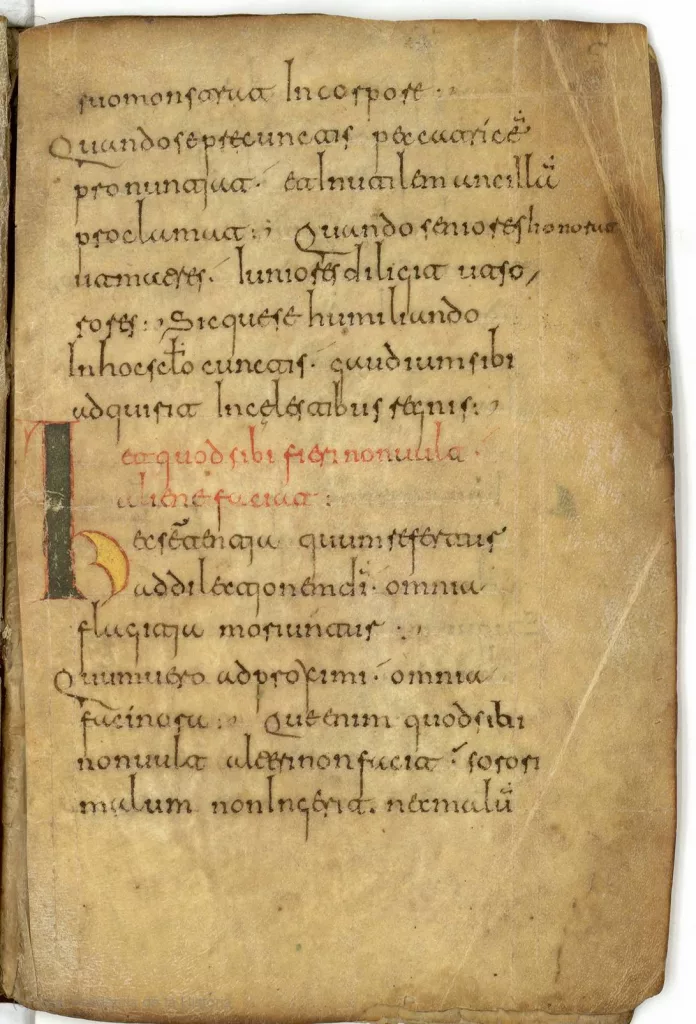 suo monstrat In corpore .,
Quando se pre cunctis peccatricē
pronuntiat . et Inutilem ancillā
proclamat :; Quando seniores honorat
ut matres . Iuniores diligit ut so/
rores :, Sicque se humiliando
In hoc sclo cunctis . gaudium sibi
adquirit In celestibus regnis :,
Et quod sibi fieri non uult .
aliene faciat :
Hec sētentia quum refertur
ad dilectionem di . omnia
flagitia moriuntur :,
Quum uero ad proximi . omnia
facinora :, Que enim quod sibi
non uult alteri non faciat . sorori
malum non Ingerit . nec malū